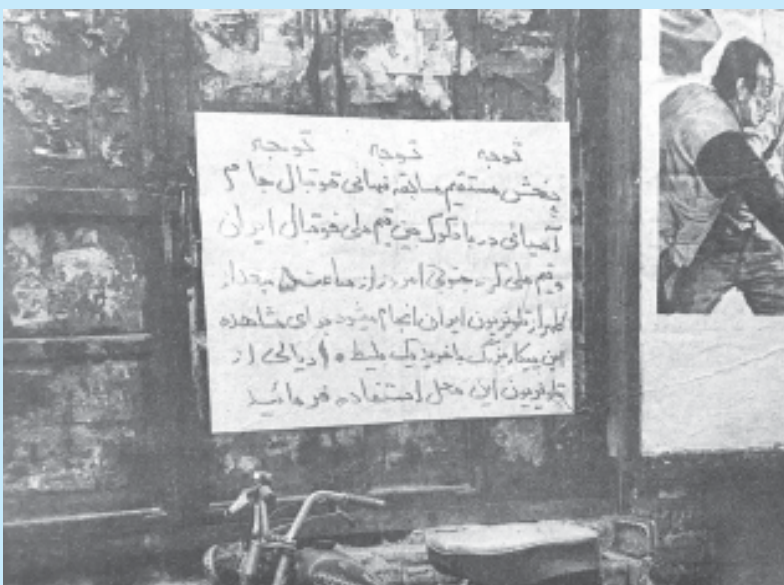 توجه توجه توجه
پخش مستقیم مسابقه نهائی فوتبال جام
آسیائی در بانکوک بین تیم ملی فوتبال ایران
و تیم ملی کره جنوبی امروز از ساعت بعداز
ظهر از تلویزیون ایران انجام میشود برای مشاهده
این پیکار بزرگ با خرید یک بلیط ۱۵ ریالی از
تلویزیون این محل استفاده فرمائید